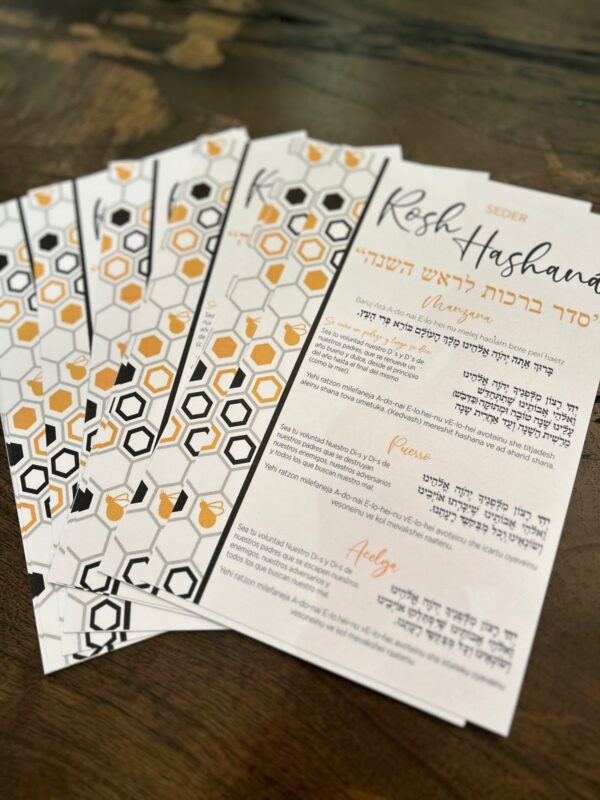 SEDER
Rosh
Hashaná
"סדר ברכות לראש השנה"
Manzana
Baruj Atá A-do-nai E-lo-hei-nu melej haolam bore perí haetz
בָּרוּךְ אַתָּה יְהוָֹה אֱלֹהֵינוּ מֶלֶךְ הָעוֹלָם בּוֹרֵא פְּרִי הָעֵץ.
Sea tu voluntad nuestro D´s y D´s de
nuestros padres, que se renueve un
año bueno y dulce, desde el principio
del año hasta el final del mismo
(como la miel).
יְהִי רָצוֹן מִלְּפָנֶיךָ יְהוָֹה אֱלֹהֵינוּ
וֵאלֹהֵי אֲבוֹתֵינוּ שֶׁתִּתְחַדֵּשׁ
עָלֵינוּ שָׁנָה טוֹבָה וּמְתוּקָה
מֵרֵאשִׁית הַשָּׁנָה וְעַד אַחֲרִית שָׁנָה
Yehí ratzon milefaneja A-do-nai E-lo-hei-nu vE-lo-hei avoteinu she titjadesh
aleinu shana tova umetuka. (Kedvash) mereshit hashana ve ad aharid shana.
Puerro
Sea tu voluntad Nuestro Di-s y Di-s de
nuestros padres que se destruyan
nuestros enemigos, nuestros adversarios
y todos los que buscan nuestro mal.
יְהִי רָצוֹן מִלְּפָנֶיךָ יְהוָֹה אֱלֹהֵינוּ
וֵאלֹהֵי אֲבוֹתֵינוּ שֶׁיִּכָּרְתוּ אוֹיְבֵינוּ
וְשׂוֹנְאֵינוּ וְכָל מְבַקְשֵׁי רָעָתֵנוּ.
Yehí ratzon milefaneja A-do-nai E-lo-hei-nu vE-lo-hei avoteinu she icartu oyeveinu
vesoneinu ve kol mevakshei raatenu.
Acelga
Sea tu voluntad Nuestro Di-s y Di-s de
nuestros padres que se escapen nuestros
enemigos, nuestros adversarios y
todos los que buscan nuestro mal.
יְהִי רָצוֹן מִלְּפָנֶיךָ יְהוָֹה אֱלֹהֵינוּ
וֵאלֹהֵי אֲבוֹתֵינוּ אוֹיְבֵינוּ
וְשׂוֹנְאֵינוּ וְכָל מְבַקְשֵׁי רָעָתֵנוּ.
Yehí ratzon milefaneja A-do-nai E-lo-hei-nu vE-lo-hei avoteinu she oyeveinu
vesoneinu ve kol mevakshei raatenu.